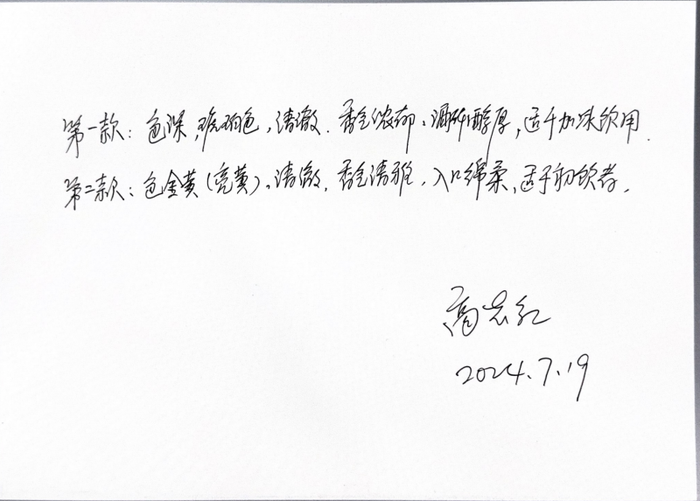 第一款：色深，琥珀色，清澈．香气浓郁，酒体醇厚，适于加冰饮用．
第二款：色金黄（亮黄），清澈，香气清雅，入口绵柔，适于初饮者．
高红
2024.7.19